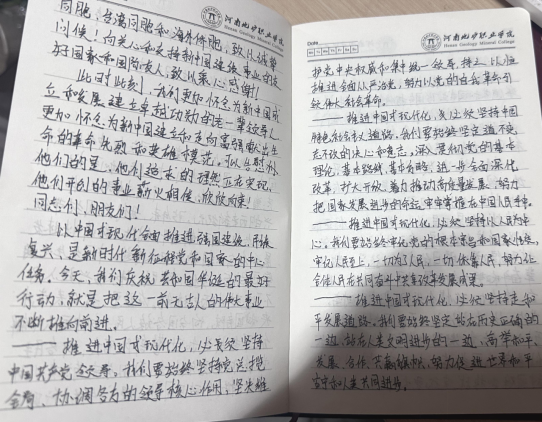 同胞、台湾同胞和海外侨胞,致以诚挚
问候!向关心和支持新中国建设事业的友
好国家和国际友人,致以衷心感谢!
此时此刻,我们更加怀念为新中国成
立和发展建立卓越功勋的老一辈领导人
更加怀念为新中国建立和走向富强献出生
命的革命先烈和英雄模范。可以告慰
他们的是,他们追求的理想正在实现,
他们开创的事业薪火相传,欣欣向荣!
同志们,朋友们!
以中国式现代化全面推进强国建设、民族
复兴,是新时代新征程党和国家的中心
任务。今天,我们庆祝共和国华诞的最好
行动,就是把这一前无古人的伟大事业
不断推向前进。
——推进中国式现代化,必须坚持
中国共产党领导。我们要始终坚持党总揽
全局、协调各方的领导核心作用,坚决维
河南地矿职业学院
Henan Geology Mineral College
Date
护党中央权威和集中统一领导,持之以恒
推进全面从严治党,努力以党的自我革命引
领伟大社会革命。
——推进中国式现代化,必须坚持中国
特色社会主义道路。我们要始终坚定道不变、
志不改的决心和意志,深入贯彻党的基本
理论、基本路线、基本方略,进一步全面深化
改革、扩大开放,着力推动高质量发展,努力
把国家发展进步的命运牢牢掌握在中国人民手中。
——推进中国式现代化,必须坚持以人民为中
心。我们要始终牢记党的根本宗旨和国家性质,
牢记人民至上,一切为了人民,一切依靠人民,努力让
全体人民在共同奋斗中共享改革发展成果。
——推进中国式现代化,必须坚持走和
平发展道路。我们要始终坚定站在历史正确的
一边、站在人类文明进步的一边,高举和平、
发展、合作、共赢旗帜,努力促进世界和平
安宁和人类共同进步。
河南地矿职业学院
Henan Geology Mineral College